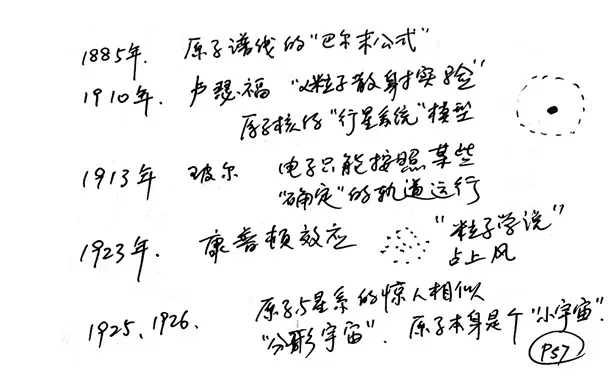 1885年. 原子谱线的“巴尔末公式”
1910年. 卢瑟福 “α粒子散射实验”
原子核的“行星系统”模型
1913年 玻尔 电子只能按照某些
“确定”的轨道运行
1923年. 康普顿效应 “粒子学说”
占上风
1925、1926. 原子与星系的惊人相似
“分形宇宙”. 原子本身是个“小宇宙”.
P57